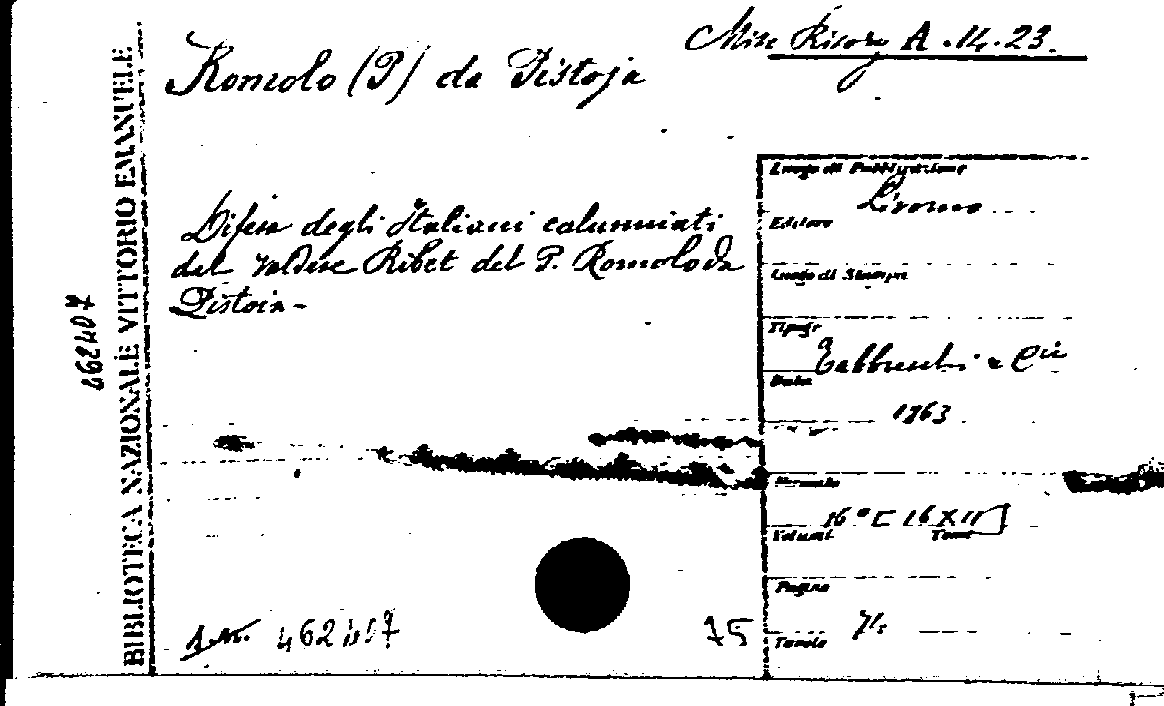 Misc. Risorg. A. 14. 23.
Romolo (P) da Pistoja
BIBLIOTECA NAZIONALE VITTORIO EMANUELE
462407
Difesa degli Italiani calunniati
dal Valdese Ribet del P. Romolo da
Pistoia -
Luogo di Pubblicazione
Livorno
Editore
Luogo di Stampa
Tipogr
Fabbreschi e Cii
Data
1863
Formato
16° [16X11]
Volumi Tomi
Pagine
75
Tavole
462407
75